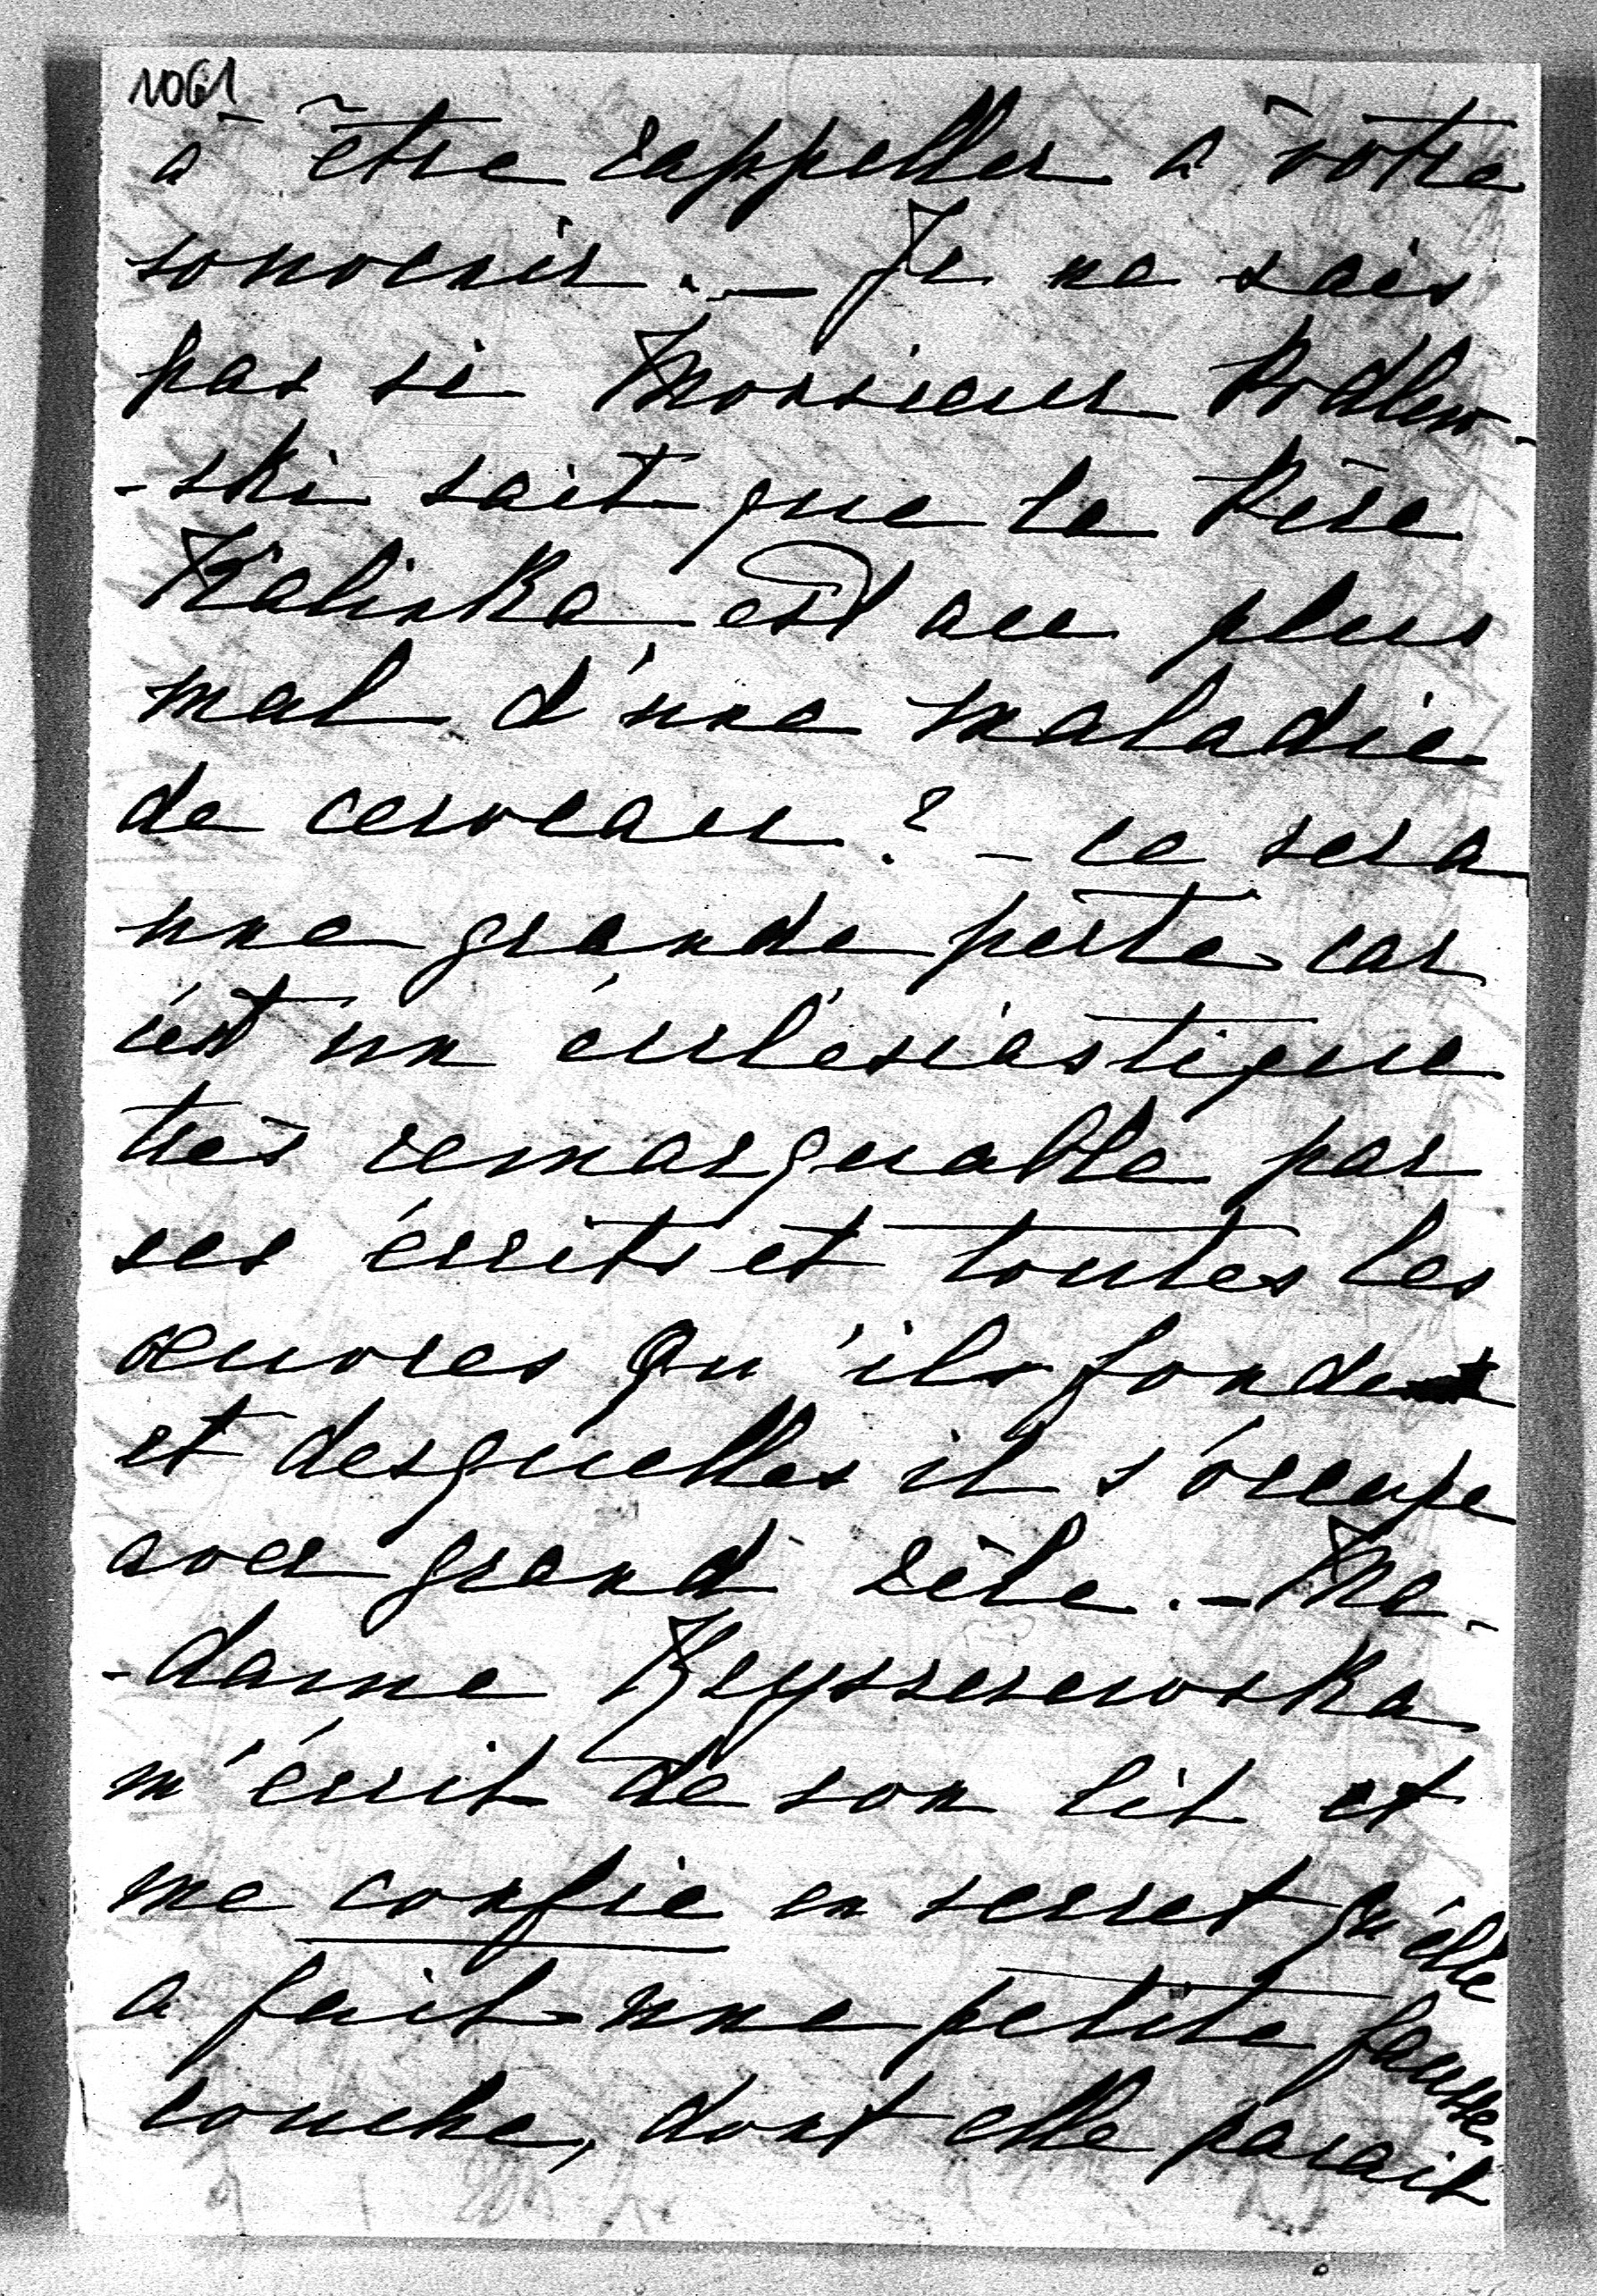 1061
à être rappeller à vôtre
souvenir. — Je ne sais
pas si Monsieur Podlew-
-ski sait que le Père
Kalinka est au plus
mal d'une maladie
de cerveau? — ce sera
une grande perte car
c'est un écclésiastique
très remarquable par
ses écrits et toutes les
œuvres qu'ils fonde
et desquelles il s'occupe
avec grand zèle. — Ma-
-dame Kryszczewska
m'écrit de son lit et
me confie en secret qu'elle
a fait une petite fausse
couche, dont elle parait